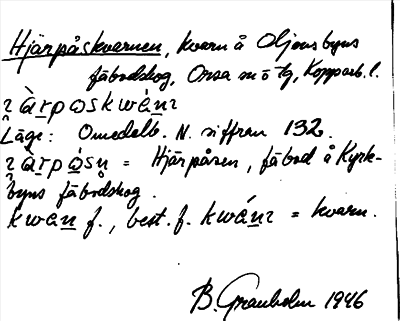 Hjärpåskvarnen, kvarn å Oljonsbyns
fäbodskog, Orsa sn o tg, Kopparb. l.
Läge: Omedelb. N. siffran 132.
= Hjärpåsen, fäbod å Kyrk-
byns fäbodskog.
kwan f., best. f. kwánı = kvarn.
B. Granholm 1946